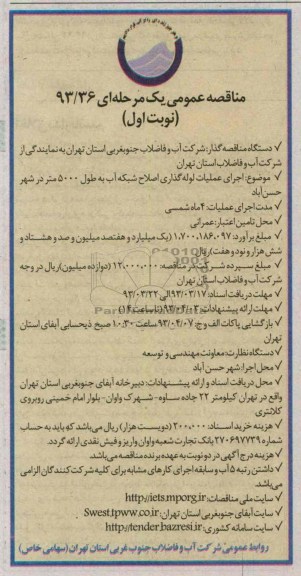 مناقصه عمومی یک مرحله‌ای ۹۳/۳۶
(نوبت اول)
✓ دستگاه مناقصه گذار: شرکت آب و فاضلاب جنوبغربی استان تهران به نمایندگی از
شرکت آب و فاضلاب استان تهران
✓ موضوع: اجرای عملیات لوله‌گذاری اصلاح شبکه آب به طول ۵۰۰۰ متر در شهر
حسن‌آباد
✓ مدت اجرای عملیات: ۴ ماه شمسی
✓ محل تامین اعتبار: عمرانی
✓ مبلغ برآورد: ۱،۷۰۰،۱۸۶،۰۹۷ (یک میلیارد و هفتصد میلیون و صد و هشتاد و
شش هزار و نود و هفت) ریال
✓ مبلغ سپرده شرکت در مناقصه: ۱۲،۰۰۰،۰۰۰ (دوازده میلیون) ریال در وجه
شرکت آب و فاضلاب استان تهران
✓ مهلت دریافت اسناد: ۹۳/۰۳/۱۷ الی ۹۳/۰۳/۲۲
✓ مهلت ارائه پیشنهادات: (تا ساعت ۱۴)
✓ بازگشایی پاکات الف و ج: ۹۳/۰۴/۰۷ ساعت ۱۰:۳۰ صبح ذیحسابی آبفای استان
تهران
✓ دستگاه نظارت: معاونت مهندسی و توسعه
✓ محل اجرا: شهر حسن آباد
✓ محل دریافت اسناد و ارائه پیشنهادات: دبیرخانه آبفای جنوبغربی استان تهران
واقع در تهران کیلومتر ۲۲ جاده ساوه- شهرک واوان- بلوار امام خمینی روبروی
کلانتری
✓ هزینه خرید اسناد: ۲۰۰،۰۰۰ (دویست هزار) ریال می‌باشد که باید به حساب
شماره ۲۷۰۶۹۷۷۳۹ بانک تجارت شعبه واوان واریز و فیش نقدی ارائه گردد.
✓ هزینه درج آگهی در دو نوبت به عهده برنده مناقصه می‌باشد.
✓ داشتن رتبه ۵ آب و سابقه اجرای کارهای مشابه برای کلیه شرکت کنندگان الزامی
می‌باشد.
✓ سایت ملی مناقصات: http://iets.mporg.ir
✓ سایت آبفای جنوبغربی استان تهران: Swest.tpww.co.ir
✓ سایت سامانه کشوری: http://tender.bazresi.ir
روابط عمومی شرکت آب و فاضلاب جنوب غربی استان تهران (سهامی خاص)